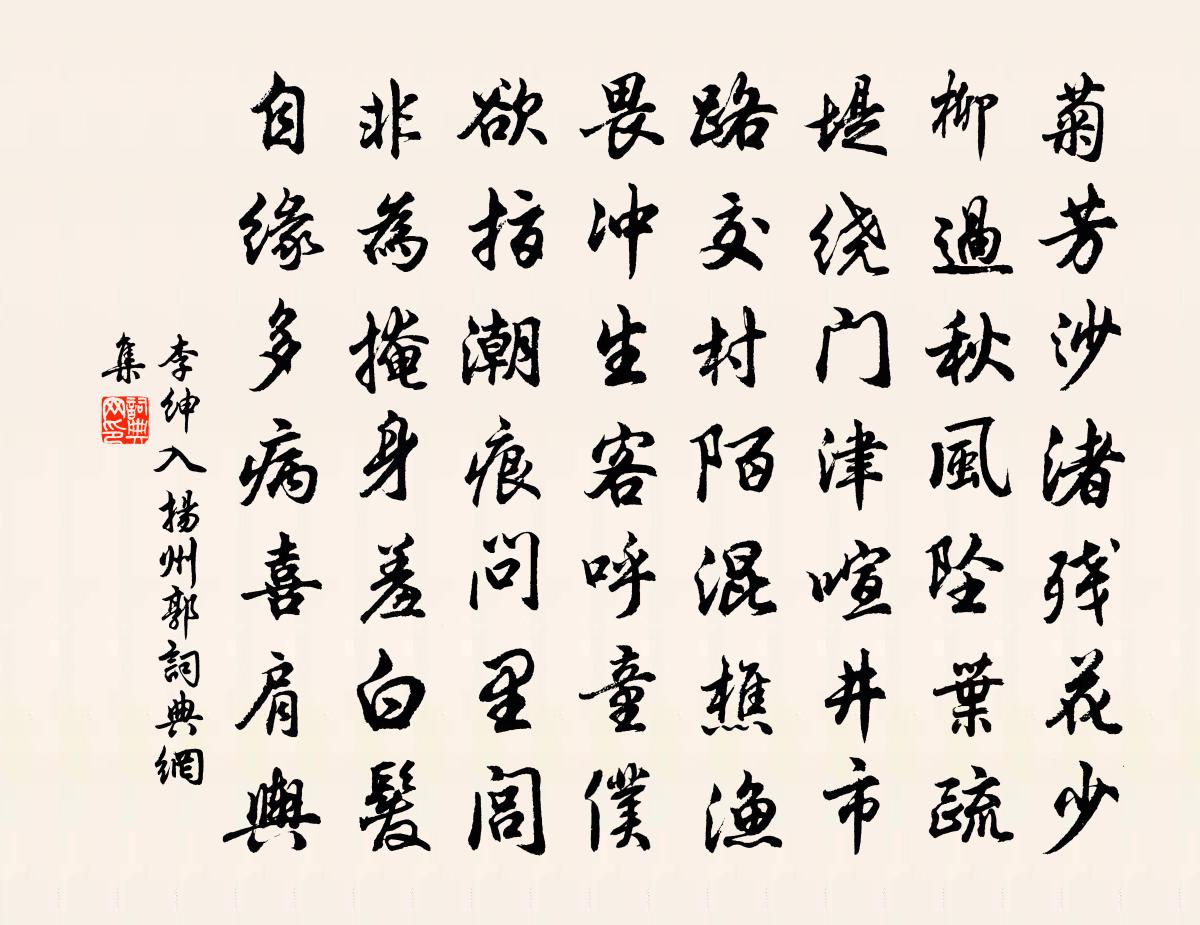 菊芳沙渚残花少
柳過秋風坠葉疏
堤绕门津喧井市
路交村陌混樵渔
畏冲生客呼童僕
欲指潮痕问里闾
非為掩身羞白髮
自缘多病喜肩輿
李绅入揚州郭詞典網
集
詞典网印